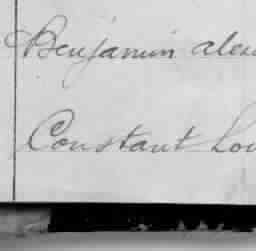 Benjamin Alex
Constant Lou